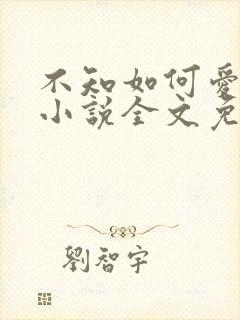 不知如何愛
小說全文免
劉智宇